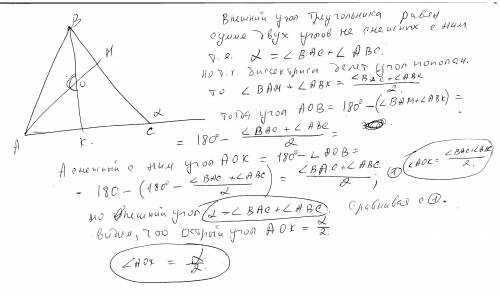 B
M
O
A
K.
C
α
Внешний угол треугольника равен
сумме двух углов не смежных с ним
т.е. α = ∠BAC + ∠ABC.
но т.к. биссектрисы делят угол пополам.
то ∠BAM + ∠ABK = ∠BAC + ∠ABC / 2.
тогда угол AOB = 180° - (∠BAM + ∠ABK) =
= 180° - ∠BAC + ∠ABC / 2 =
А смежный с ним угол AOK = 180° - ∠AOB =
= 180 - (180° - ∠BAC + ∠ABC / 2) = ∠BAC + ∠ABC / 2 ; ① ∠AOK = ∠BAC + ∠ABC / 2.
но внешний угол α = ∠BAC + ∠ABC. Сравнивая с ①.
видно, что острый угол AOK = α / 2.
∠AOK = α / 2.